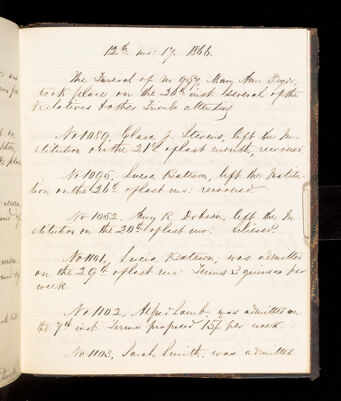 12th mo: 17. 1866.
The Funeral of no 939, Mary Ann Pryor,
took place on the 20th inst Several of the
Relatives & other Friends attending
No 1089, Clara J. Stevens, left the In-
stitution on the 21st of last month, recovered
No 1095, Lucia Rateson, left the Institu-
tion on the 26th of last mo: recovered
No 1052, Amy R. Dobson, left the In-
stitution on the 20th of last mo:
No 1101, Lucia Rateson, was admitted
on the 29th of last mo: Terms 2 guineas per
week.
No 1102, Alfred Lamb, was admitted on
the 7th inst. Terms proposed 15/ per week.
No 1103, Sarah Smith, was admitted